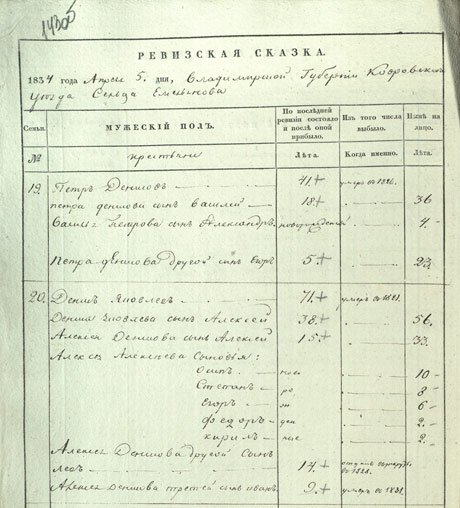 14305
РЕВИЗСКАЯ СКАЗКА.
1834 года Апреля 5. дня, Владимирской Губернiи Ковровскаго
уезда Сельца Емельянова
Семьи. МУЖЕСКIЙ ПОЛЪ. По последней ревизiи состояло и после оной прибыло. Изъ того числа выбыло. Ныне на лицо.
№ крестьяне Лета. Когда именно. Лета.
19. Петръ Денисовъ 41 умеръ въ 1826.
Петра Денисова сынъ Василей 18 36
Василья Петрова сынъ Александръ новорожденный 4
Петра Денисова другой сынъ Егоръ 5 23
20. Денисъ Яковлевъ 71 умеръ въ 1821.
Дениса Яковлева сынъ Алексей 38 56.
Алексея Денисова сынъ Алексей 15. 33.
Алексея Алексеева Сыновья:
Осипъ 10
Степанъ 8
Егоръ 6
Федоръ 2.
Кирилъ 2.
Алексея Денисова другой Сынъ
Левъ 14 отданъ въ рекруты въ
Алексея Денисова третей сынъ Иванъ 9 умеръ въ 1831.